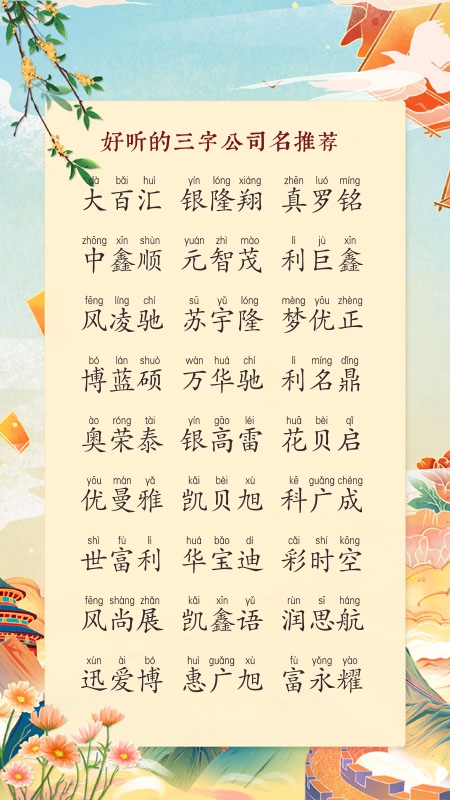 好听的三字公司名推荐
dà bǎi huì yín lóng xiáng zhēn luó míng
大百汇 银隆翔 真罗铭
zhōng xīn shùn yuán zhì mào lì jù xīn
中鑫顺 元智茂 利巨鑫
fēng líng chí sū yǔ lóng mèng yōu zhèng
风凌驰 苏宇隆 梦优正
bó lán shuò wàn huá chí lì míng dǐng
博蓝硕 万华驰 利名鼎
ào róng tài yín gāo léi huā bèi qǐ
奥荣泰 银高雷 花贝启
yōu màn yǎ kǎi bèi xù kē guǎng chéng
优曼雅 凯贝旭 科广成
shì fù lì huá bǎo dí cǎi shí kōng
世富利 华宝迪 彩时空
fēng shàng zhǎn kǎi xīn yǔ rùn sī háng
风尚展 凯鑫语 润思航
xùn ài bó huì guǎng xù fù yǒng yào
迅爱博 惠广旭 富永耀